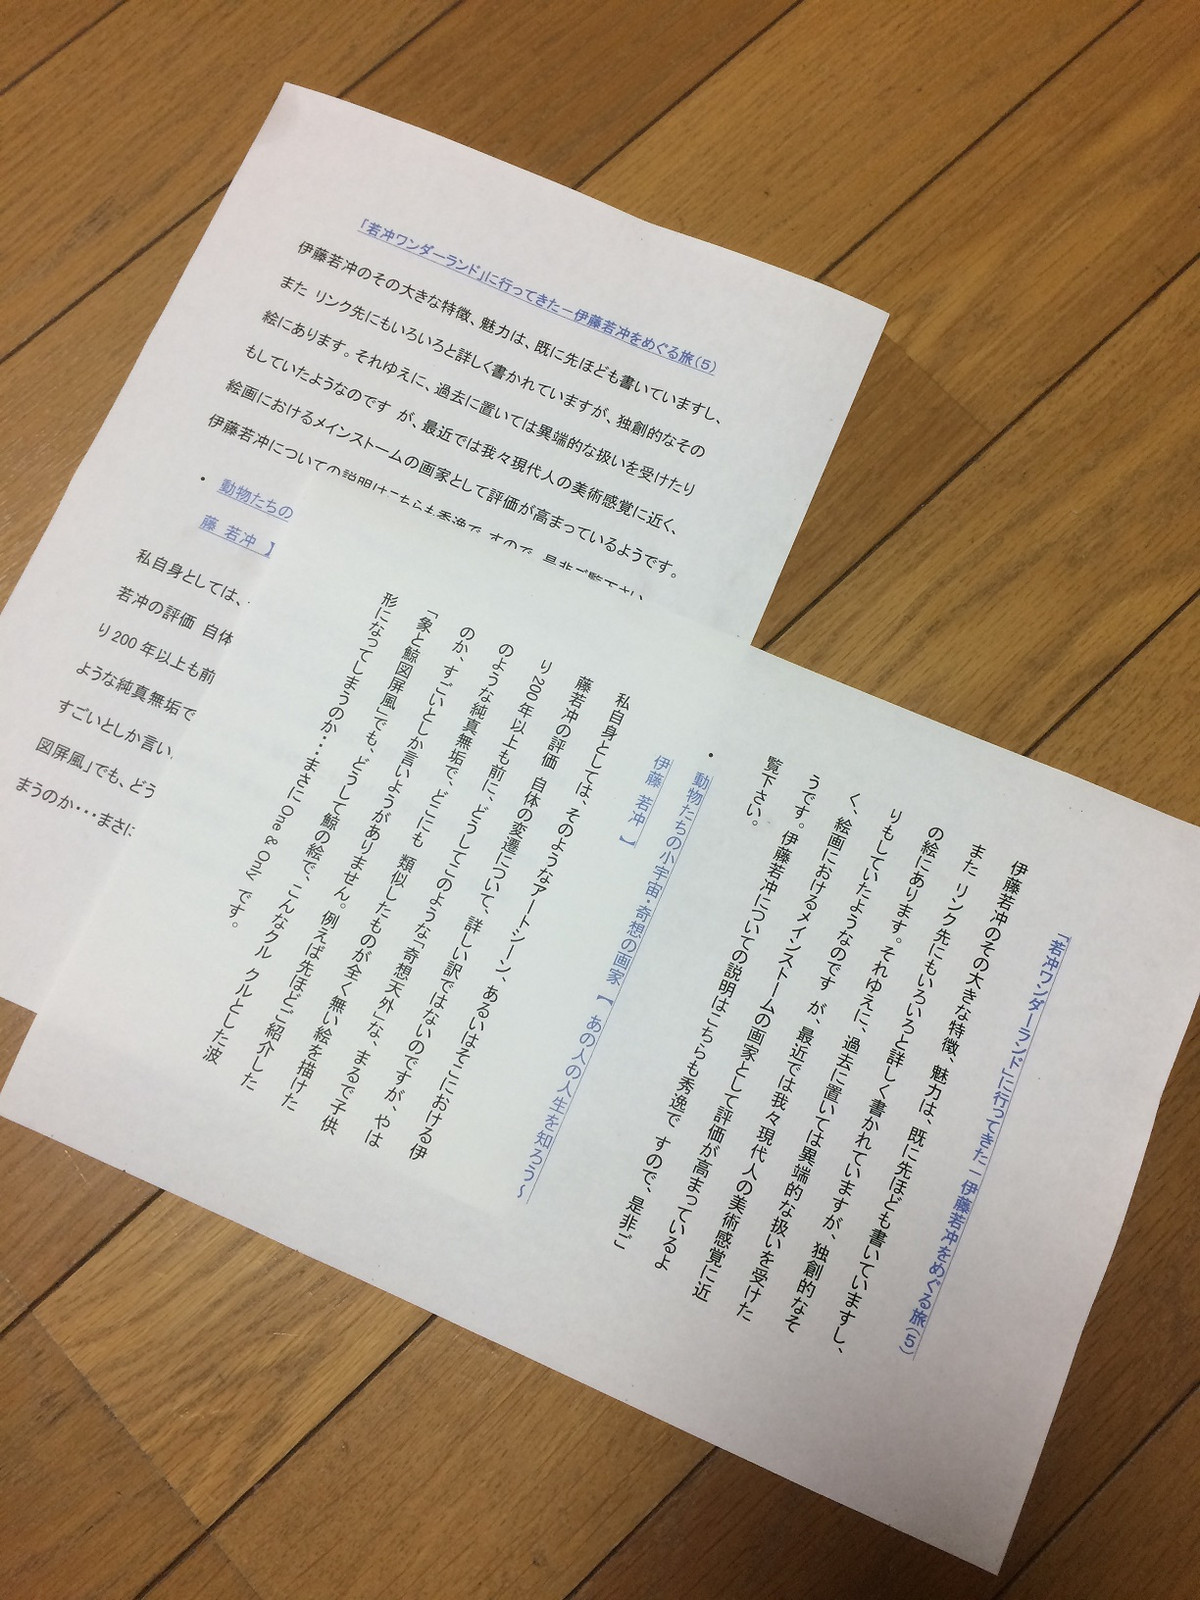 「若冲ワンダーランド」に行ってきた－伊藤若冲をめぐる旅（５）
伊藤若冲のその大きな特徴、魅力は、既に先ほども書いていますし、
また リンク先にもいろいろと詳しく書かれていますが、独創的なその
絵にあります。それゆえに、過去に置いては異端的な扱いを受けたり
もしていたようなのです が、最近では我々現代人の美術感覚に近く、
絵画におけるメインストームの画家として評価が高まっているようです。
伊藤若冲についての説明はこちらも秀逸で すので、是非ご覧下さい。
・ 動物たちの
藤 若冲 】
私自身としては、
若冲の評価 自体
り 200 年以上も前
ような純真無垢で
すごいとしか言い
図屏風」でも、どう
まうのか・・・まさに
「若冲ワンダーランド」に行ってきた－伊藤若冲をめぐる旅（５）
伊藤若冲のその大きな特徴、魅力は、既に先ほども書いていますし、
また リンク先にもいろいろと詳しく書かれていますが、独創的なそ
の絵にあります。それゆえに、過去に置いては異端的な扱いを受けた
りもしていたようなのです が、最近では我々現代人の美術感覚に近
く、絵画におけるメインストームの画家として評価が高まっているよ
うです。伊藤若冲についての説明はこちらも秀逸で すので、是非ご
覧下さい。
・ 動物たちの小宇宙・奇想の画家 【 あの人の人生を知ろう～
伊藤 若冲 】
私自身としては、そのようなアートシーン、あるいはそこにおける伊
藤若冲の評価 自体の変遷について、詳しい訳ではないのですが、やは
り 200 年以上も前に、どうしてこのような「奇想天外」な、まるで子供
のような純真無垢で、どこにも 類似したものが全く無い絵を描けた
のか、すごいとしか言いようがありません。例えば先ほどご紹介した
「象と鯨図屏風」でも、どうして鯨の絵で、こんなクル クルとした波
形になってしまうのか・・・まさに One & Only です。